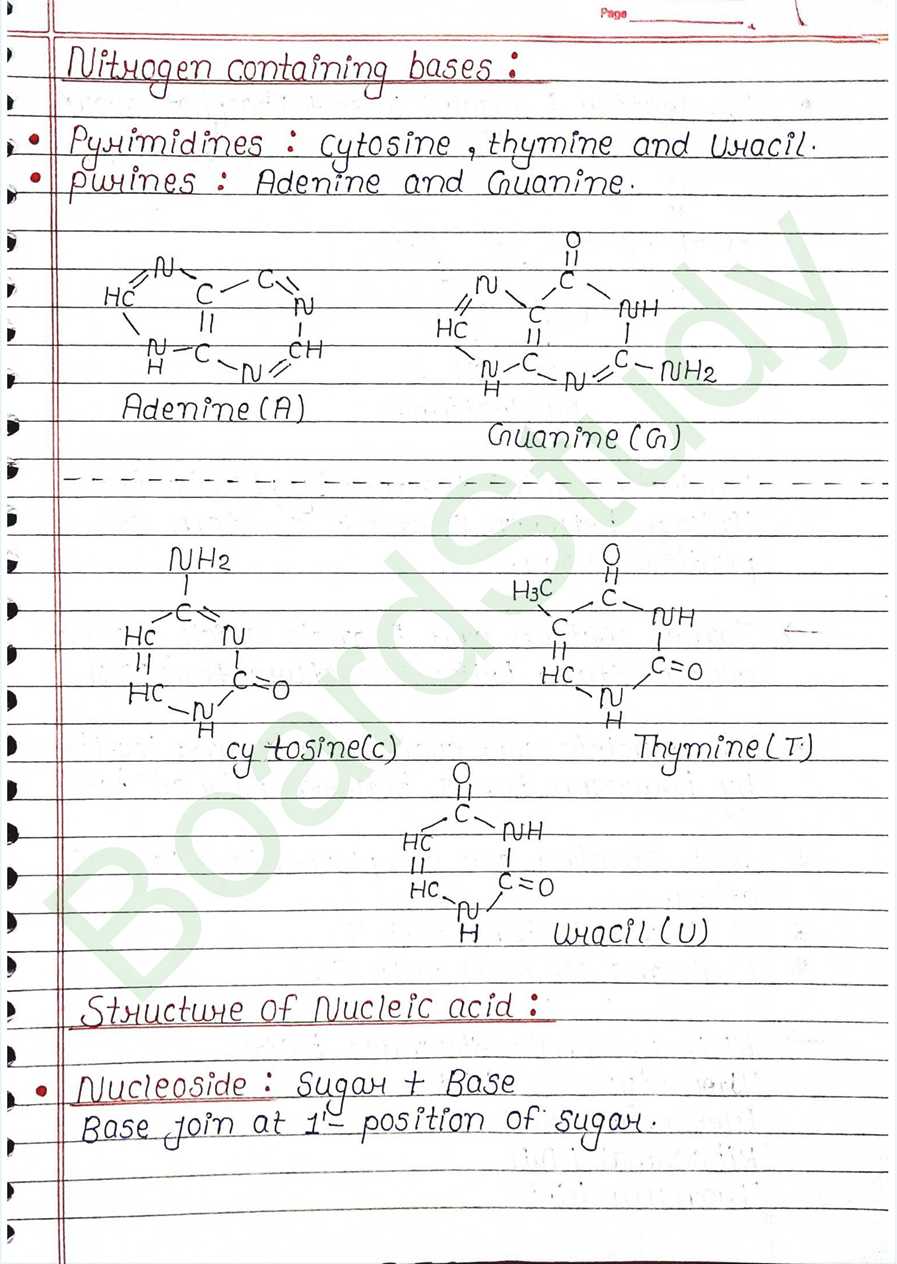 Page
Nitrogen containing bases :
• Pyrimidines : Cytosine , thymine and Uracil.
• purines : Adenine and Guanine.
HC N C C N
N H C N CH
Adenine (A)
O
N C C NH
HC
N H C N C NH2
Guanine (G)
NH2
C
HC N
HC C=O
N
H
cytosine(c)
O
H3C C NH
C
HC C=O
N
H
Thymine (T)
O
C
HC NH
HC C=O
N
H
Uracil (U)
Structure of Nucleic acid :
• Nucleoside : Sugar + Base
Base join at 1'- position of sugar.
BoardStudy